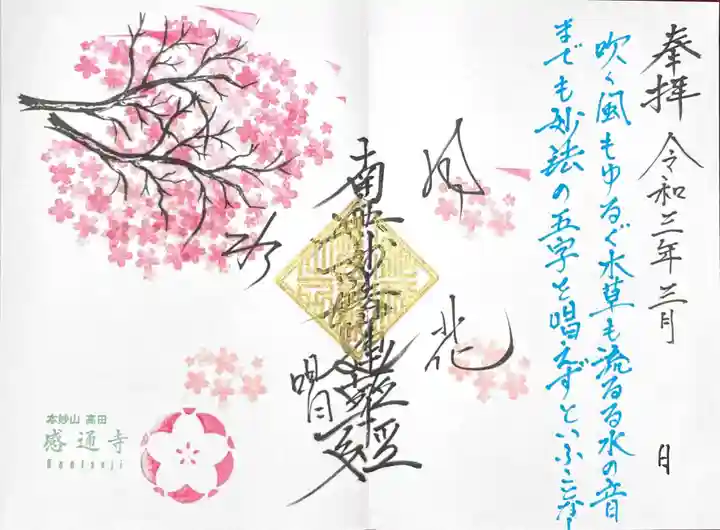 奉拝 令和三年三月 日
吹く風もゆるぐ水草も流るる水の音
までも妙法の五字を唱えずといふことなし
風
花
南無妙法蓮華経
唱
本妙山 高田
感通寺
Kantsuji